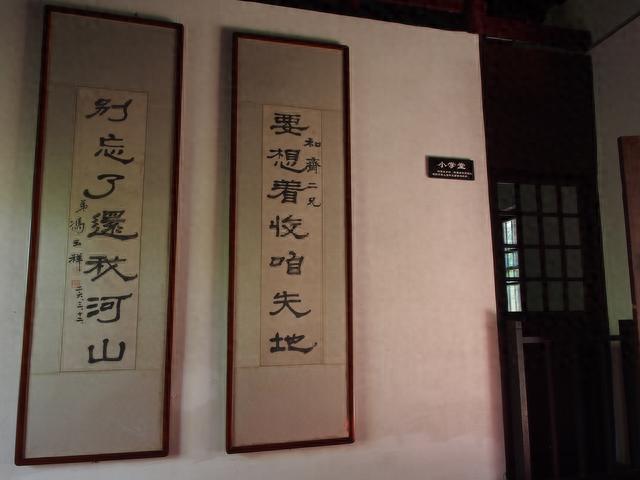 和齋二兄
要想着收咱失地
别忘了還我河山
弟馮玉祥
二六、三、十二
小学堂